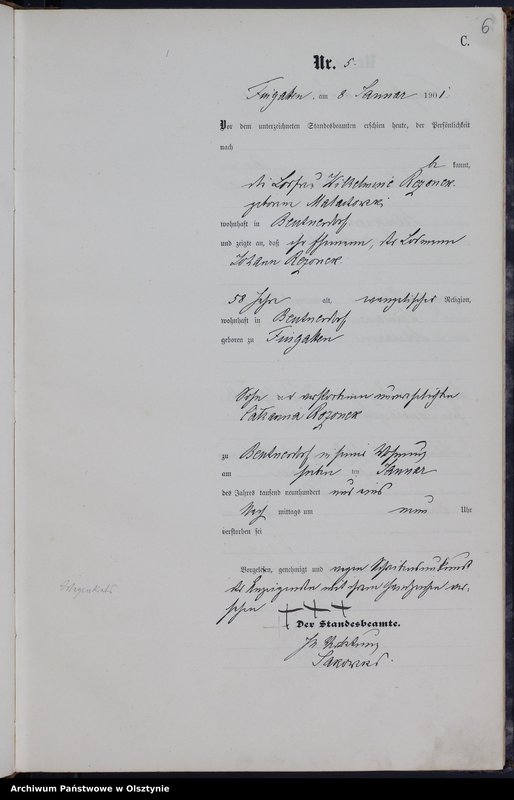 6
C.
Nr. 5.
Fingatten, am 8. Januar 1901.
Vor dem unterzeichneten Standesbeamten erschien heute, der Persönlichkeit
nach
be kannt,
die Losfrau Wilhelmine Rezonek
geborene
wohnhaft in Beutnerdorf
und zeigte an, daß ihr Ehemann, der Losmann
Johann Rezonek
58 Jahre alt, evangelischer Religion,
wohnhaft in Beutnerdorf
geboren zu Fingatten
Sohn der verstorbenen unverehelichten
Catharina Rezonek
zu Beutnerdorf in seiner Wohnung
am sieben ten Januar
des Jahres tausend neunhundert und eins
Nach mittags um neun Uhr
verstorben sei
Vorgelesen, genehmigt und wegen Schreibensunkunde
der Anzeigenden mit ihren Handzeichen ver-
sehen +++
Der Standesbeamte.
In Vertretung
Archiwum Państwowe w Olsztynie